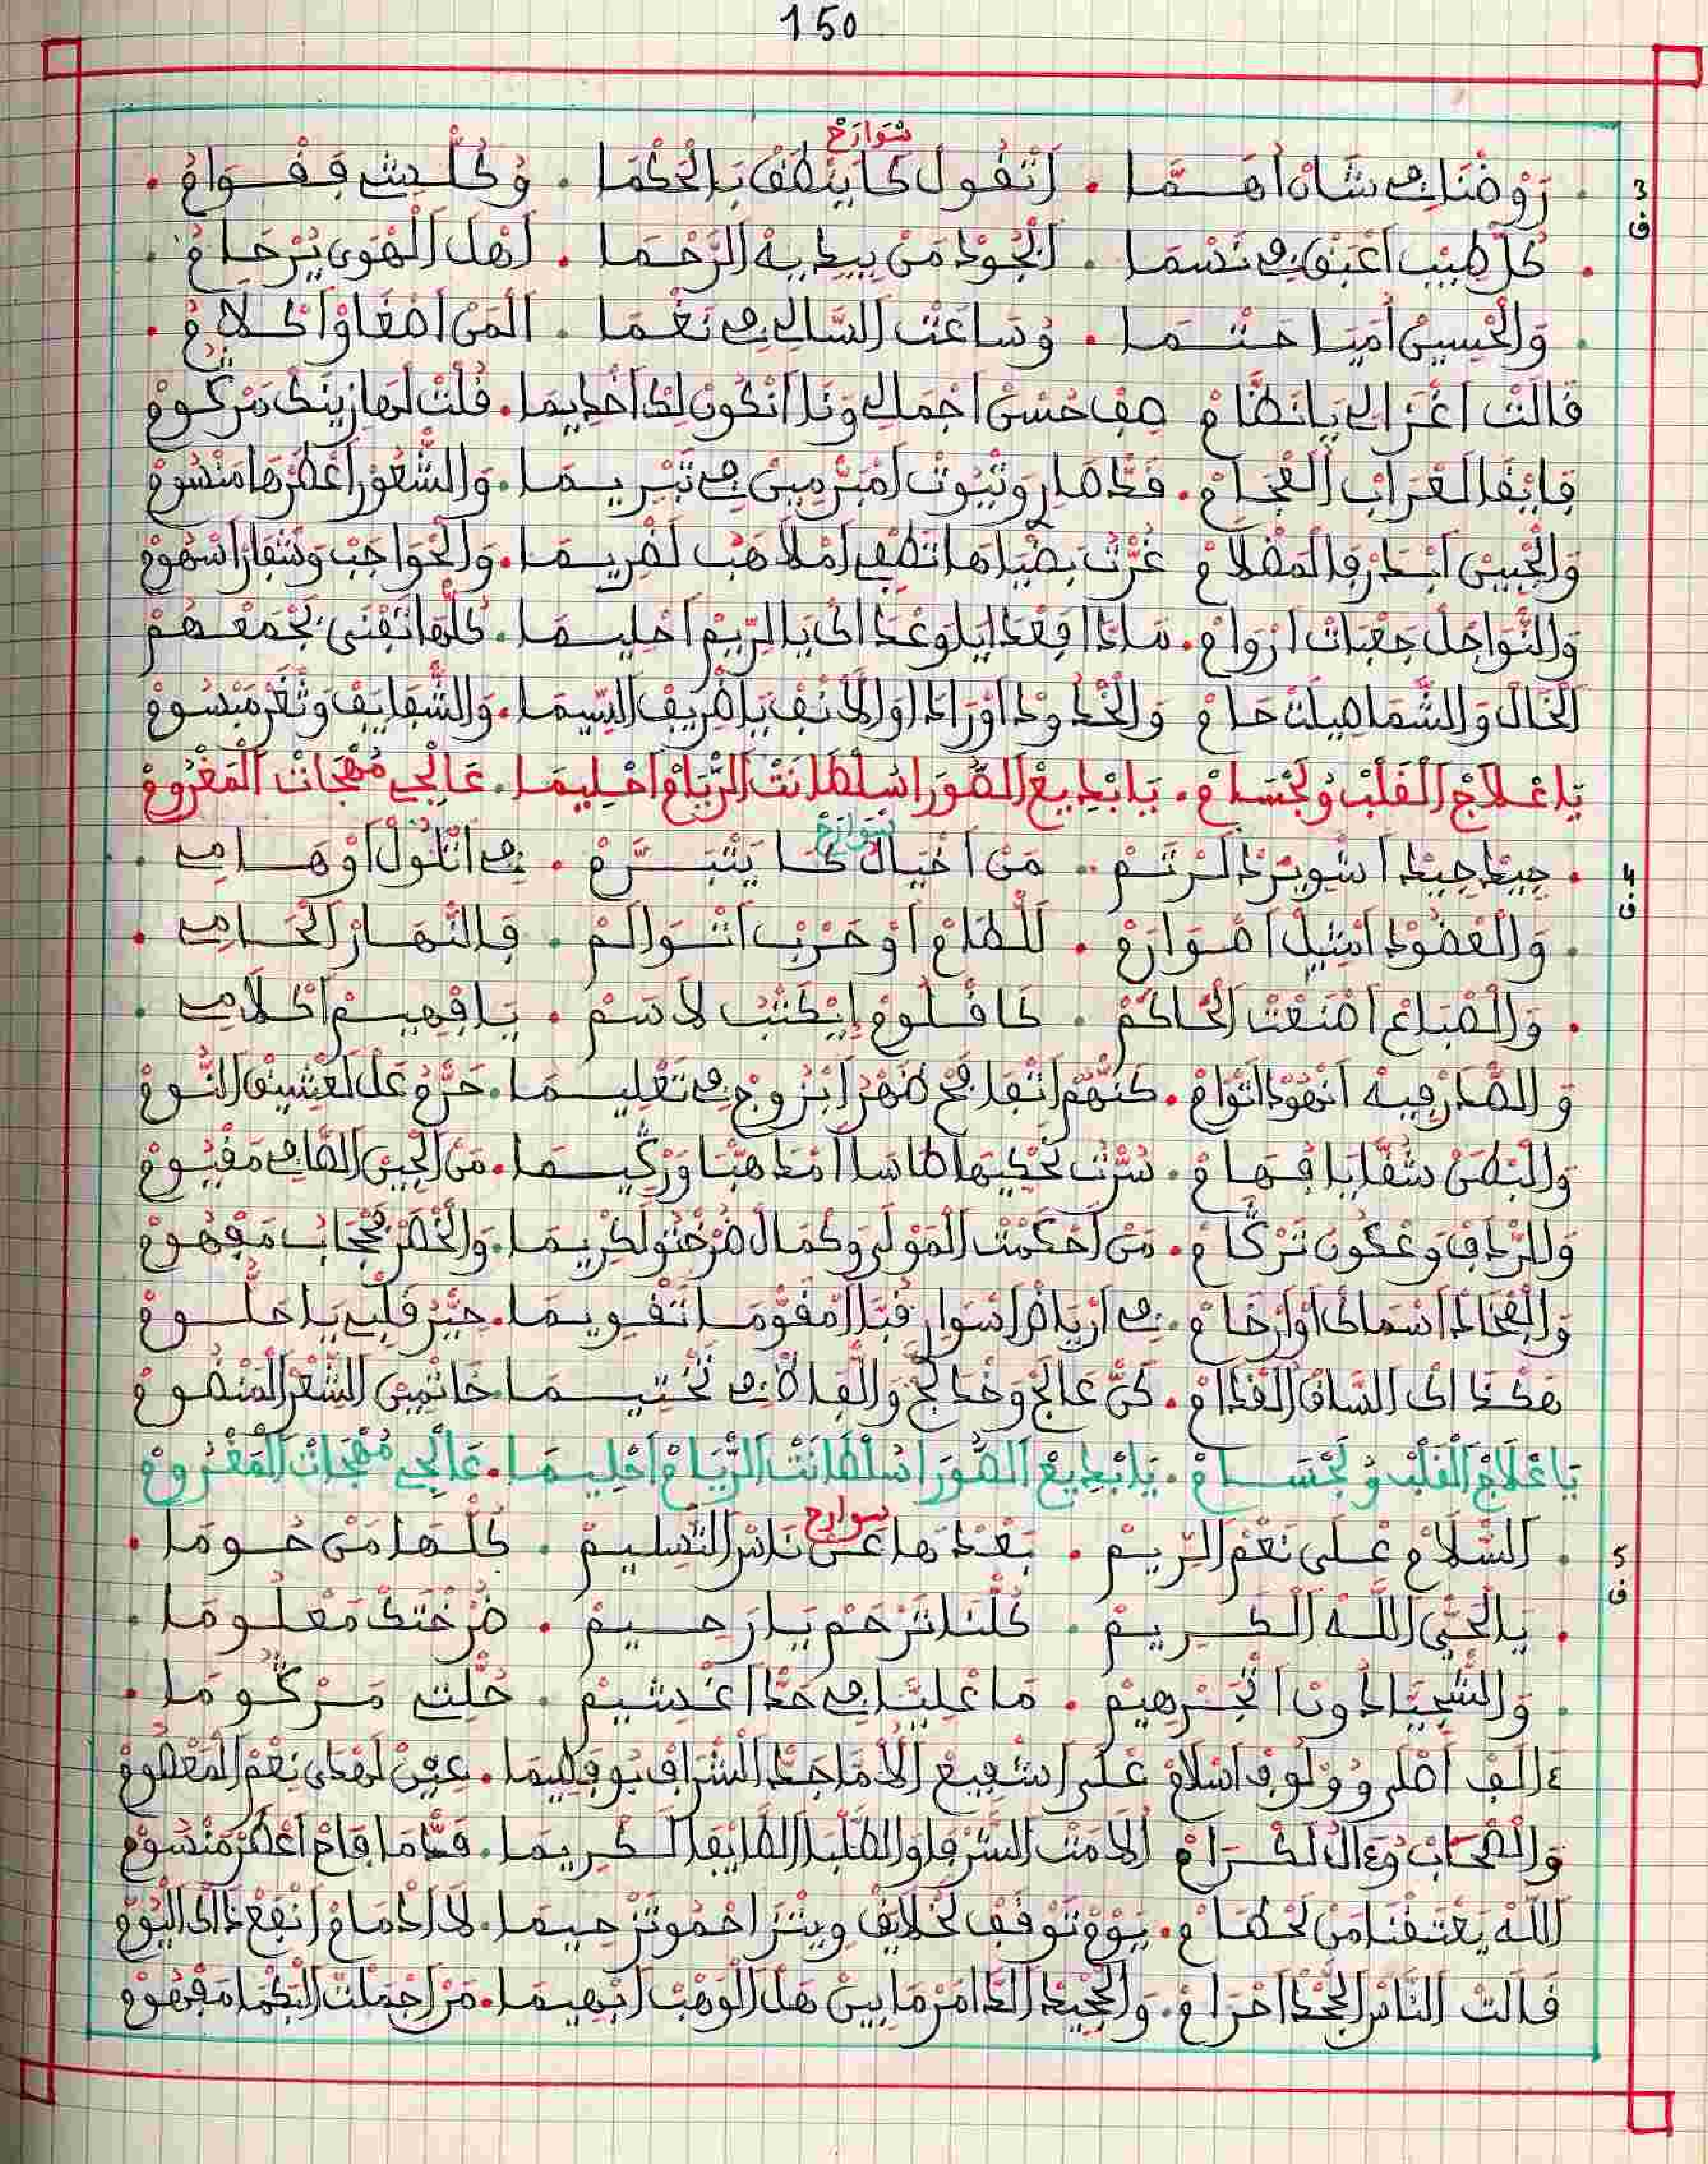 150
سوارح
3 ف
رَوْضْنَا فِي شَانْ اهَمَّا . اتْقُولْ كَا يَنْطَقْ بَالْحَكْمَا . وُكُلْ حِينْ فِقْوَامْ .
كُلْ طِيبْ اعْبَقْ فِي نَسْمَا . الْجُودْ مَنْ بِيدِيهْ الرَّحْمَا . اهْلْ الْهْوَى يُرْحَامْ .
وَالْحْسِينْ امَّايَا حَتْمَا . وُسَاعَتْ السَّالِي فِي نَغْمَا . الْمَنْ اصْغَاوْ اكْلَامْ .
قَالَتْ اغْزَالِي يَا نَظَّامْ صِفْ حُسْنْ اجْمَالِي وَنَا انْكُونْ لِكْ اخْدِيمَا . قُلْتْ لَهَا زِينَكْ مَرْكُومْ
فَايْقَا لَعْرَابْ الْعْجَامْ . قَدْهَا رِوِتْيُوتْ امْبَرْ مِينْ فِي تَبْرِيمَا . وَالشّْعُورْ اعْطَرْهَا مَنْسُومْ
وَالْجْبِينْ ابْدَرْ فَالْمَظْلَامْ غُرّْتْ بِضْيَاهَا تَطْفِي امْلَاهَبْ لَضْرِيمَا . وَالْحْوَاجَبْ وَشْفَارْ اسْهُومْ
وَالنّْوَاجَلْ جَعْبَاتْ ارْوَامْ . مَادَا فِعْدَايَا وَعْدَاكْ يَا الرِّيمْ احْلِيمَا . كُلْهَا تَفْنَى بَجْمَعْهُمْ
الْخَالْ وَالشَّمَا صِيلْتْ حَامْ وَالْخْدُودْ اوْرَادْ اوْ الَانْفْ يَا ضْرِيفْ السِّيمَا . وَالشّْفَايَفْ وَتْغَرْ مَبْسُومْ
يَا عْلَاجْ الْقَلْبْ وُلَجْسَامْ . يَا بْدِيعْ الصُّورَا سُلْطَانَتْ الرّْيَامْ احْلِيمَا . عَالْجِي مُهْجَاتْ الْمَغْرُومْ
سوارح
4 ف
جِيدْ جِيدْ اشْوِيرَدْ الرْتَمْ . مَنْ اخْيَالْ كَا يَتْبَرَّمْ . فِي اتْلُولْ اوْهَامِي .
وَالْعْضُودْ امْتِيلْ اصْوَارَمْ . لَلْطَامْ اوْ حَرْبْ اتْوَالَمْ . فَالنّْهَارْ الْحَامِي .
وَالْصْبَاعْ اصْنَعْتْ الْحَاكَمْ . كَا قْلُومْ اتْكَتَّبْ لَاسَمْ . يَا فْهِيمْ اكْلَامِي .
وَالصْدَرْ فِيهْ انْهُودْ اتْوَامْ . كَنّْهُمْ اتْفَافَحْ ضَهْرْ ابْزُوجْ فِي تَعْلِيمَا . حَرَّمْ عَلْ لَعْشِيقْ النُّومْ
وَالْبْطَنْ شُقَّا يَا فْهَامْ . سُرّْتْ تَحْكِيهَا طَاسَا امْدَهْبَا وَرْكِيمَا . مَنْ الْجِينْ الصَّافِي مَقْيُومْ
وَالرّْدَافْ وَعْكُونْ تَرْكَامْ . مَنْ احْكَمْتْ الْمَوْلَى وَكْمَالْ ضْرَخْتُو لَكْرِيمَا . وَالْخْصَرْ مَحْجَابْ مَفْهُومْ
وَالْفْخَادْ اسْمَاكْ اوْ ارْخَامْ . فِي ارْيَاضْ اسْوَارْ قُبَّا امْقَوّْمَا تَقْوِيمَا . حَيَّرْ قَلْبِي يَا حَلُّومْ
هَكْدَاكْ السَّاقْ الْقْدَامْ . كَنّْ عَالْجْ وَخْدَلَّجْ وَالْفَالَاتْ فِي تَخْتِيمَا خَاتْمِينْ الشّْعَرْ الْمَنْضُومْ
يَا عْلَاجْ الْقَلْبْ وُلَجْسَامْ . يَا بْدِيعْ الصُّورَا سُلْطَانَتْ الرّْيَامْ احْلِيمَا . عَالْجِي مُهْجَاتْ الْمَغْرُومْ
سوارح
5 ف
السّْلَامْ عْلَى نَعْمْ الرِّيمْ . بَعْدْهَا عَنْ نَاسْ التَّسْلِيمْ . كُلّْهَا مَنْ حُومَا .
يَا لْحَيّْ اللَّهْ الْكْرِيمْ . كُلّْنَا تَرْحَمْ يَا رْحِيمْ . ضْرَخْتَكْ مَعْلُومَا .
وَالشِّيَادُونْ اتْجَرْهِيمْ . مَا عْلِينَا فِي حَدْ اغْشِيمْ . حُلّْتِي مَرْكُومَا .
ءَالَفْ اصْلَى وُولُوفْ اسْلَامْ عْلَى اشْفِيعْ الَامَّا جَدْ الشّْرَافْ بُو فَطِيمَا . عِينْ لَهْدَى نَعْمْ الْمَعْظُومْ
وَالصّْحَابْ وُءَالْ لَكْرَامْ الَامَتْ الشُّرْفَا وَالطُّلْبَا الطَّايْفَا الْكْرِيمَا . قَدّْ مَا فَاحْ اعْطَرْ مَنْسُومْ
اللَّهْ يَعْتَقْنَا مَنْ لَحْطَامْ . يَوْمْ تَوْقَفْ لَخْلَايَقْ وِيتْرَاحْمُو تَرْحِيمَا . لَا ادْمَامْ انْفَعْ دَاكْ الْيُومْ
قَالَتْ النَّاسْ الْجْحْدْ احْرَامْ . وَالْجْحِيدْ الدَّامَرْ مَا بِينْ هَلْ الْوَهْبْ ابْهِيمَا . مَنْ اجْمَلْتْ الْبَكْمَا مَفْهُومْ